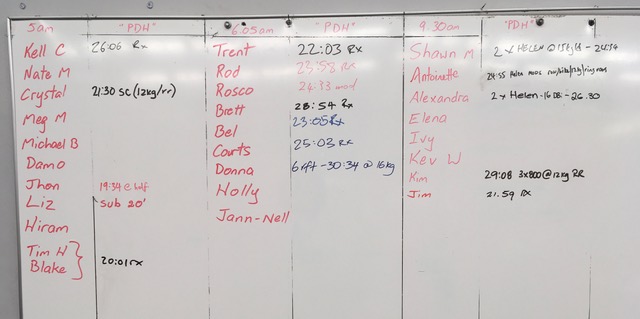 5am "PDH" 6.05am "PDH" 9.30am "PDH"
Kell C 26:06 Rx Trent 22:03 Rx Shawn M 2 x HELEN
Nate M Rod 23:58 Rx Antoinette 24:55 Helen
Crystal 21:30 SC (12kg/rr) Rosco 24:33 mod Alexandra 2 x Helen-16 DB - 26.30
Meg M Brett 28:54 Rx Elena
Michael B Bel 23:05 Rx Ivy
Damo Courts 25:03 Rx Kev W
Jhon 19:34 @ half Donna 6 rft - 30:34 @ 16kg Kim 29:08 3x800 @ 12kg RR
Liz sub 20' Holly Jim 21.59 RX
Hiram Jann-Nell
Tim H
Blake 20:01 rx